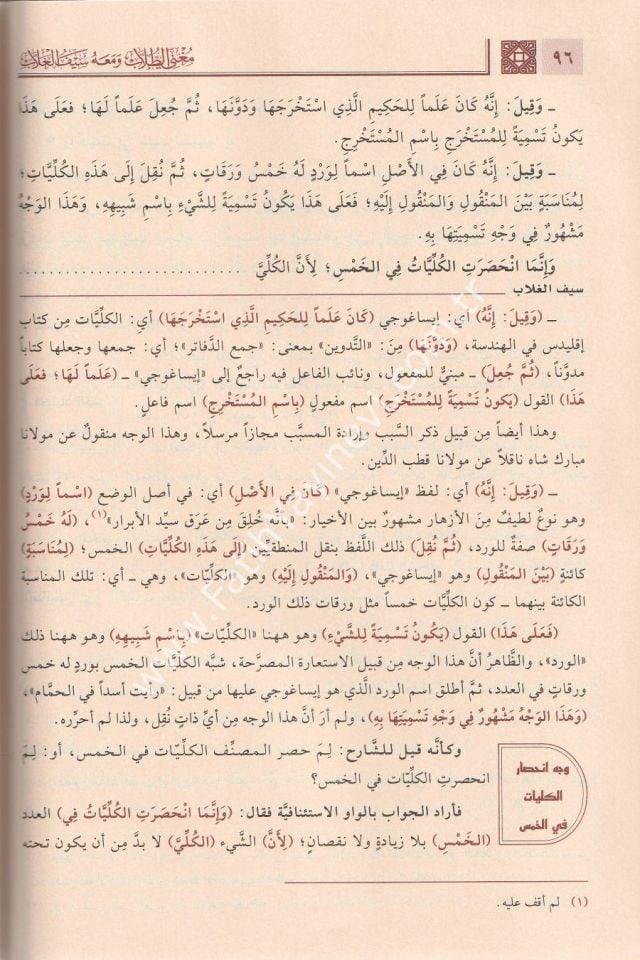 ٩٦
مُغْنِي الطُّلَّابِ وَمَعَهُ سَيْفُ الْغَلَّابِ
ـ وَقِيلَ: إِنَّهُ كَانَ عَلَماً لِلحَكِيمِ الَّذِي اسْتَخْرَجَهَا وَدَوَّنَهَا، ثُمَّ جُعِلَ عَلَماً لَهَا؛ فعَلَى هَذَا
يَكونُ تَسْمِيَةً لِلمُسْتَخْرَجِ بِاسْمِ المُسْتَخْرِجِ.
ـ وَقِيلَ: إِنَّهُ كَانَ فِي الأَصْلِ اسْماً لِوَرْدٍ لَهُ خَمْسُ وَرَقَاتٍ، ثُمَّ نُقِلَ إِلَى هَذِهِ الكُلِّيَّاتِ؛
لِمُنَاسَبَةٍ بَيْنَ المَنْقُولِ وَالمَنْقُولِ إِلَيْهِ؛ فَعَلَى هَذَا يَكُونُ تَسْمِيَةً لِلشَّيْءِ بِاسْمِ شَبِيهِهِ، وَهَذَا الوَجْهُ
مَشْهُورٌ فِي وَجْهِ تَسْمِيَتِهَا بِهِ.
وَإِنَّمَا انْحَصَرَتِ الكُلِّيَّاتُ فِي الخَمْسِ؛ لِأَنَّ الكُلِّيَّ ............................
سيف الغلاب
ـ (وَقِيلَ: إِنَّهُ) أي: إيساغوجي (كَانَ عَلَماً لِلحَكِيمِ الَّذِي اسْتَخْرَجَهَا) أي: الكلِّيَّات مِن كتاب
إقليدس في الهندسة، (وَدَوَّنَهَا) مِنَ: «التَّدوين» بمعنى: «جمع الدَّفاتر»؛ أي: جمعها وجعلها كتاباً
مدوَّناً، (ثُمَّ جُعِلَ) ـ مبنيٌّ للمفعول، ونائب الفاعل فيه راجعٌ إلى «إيساغوجي» ـ (عَلَماً لَهَا؛ فعَلَى
هَذَا) القول (يَكونُ تَسْمِيَةً لِلمُسْتَخْرَجِ) اسم مفعولٍ (بِاسْمِ المُسْتَخْرِجِ) اسم فاعلٍ.
وهذا أيضاً مِن قبيل ذكر السَّبب وإرادة المسبَّب مجازاً مرسلاً، وهذا الوجه منقولٌ عن مولانا
مبارك شاه ناقلاً عن مولانا قطب الدِّين.
ـ (وَقِيلَ: إِنَّهُ) أي: لفظ «إيساغوجي» (كَانَ فِي الأَصْلِ) أي: في أصل الوضع (اسْماً لِوَرْدٍ)
وهو نوعٌ لطيفٌ مِنَ الأزهار مشهورٌ بين الأخيار: «بأنَّه خُلِقَ مِن عَرَق سيِّد الأبرار»(١)، (لَهُ خَمْسُ
وَرَقَاتٍ) صفةٌ للورد، (ثُمَّ نُقِلَ) ذلك اللَّفظ بنقل المنطقيِّين (إِلَى هَذِهِ الكُلِّيَّاتِ) الخمس؛ (لِمُنَاسَبَةٍ)
كائنةٍ (بَيْنَ المَنْقُولِ) وهو «إيساغوجي»، (وَالمَنْقُولِ إِلَيْهِ) وهو «الكلِّيَّات»، وهي ـ أي: تلك المناسبة
الكائنة بينهما ـ كون الكلِّيَّات خمساً مثل ورقات ذلك الورد.
(فَعَلَى هَذَا) القول (يَكُونُ تَسْمِيَةً لِلشَّيْءِ) وهو ههنا «الكلِّيَّات» (بِاسْمِ شَبِيهِهِ) وهو ههنا ذلك
«الورد»، والظَّاهرُ أنَّ هذا الوجه مِن قبيل الاستعارة المصرَّحة، شبَّه الكلِّيَّات الخمس بوردٍ له خمس
ورقاتٍ في العدد، ثمَّ أطلق اسم الورد الَّذي هو إيساغوجي عليها مِن قبيل: «رأيت أسداً في الحمَّام»،
(وَهَذَا الوَجْهُ مَشْهُورٌ فِي وَجْهِ تَسْمِيَتِهَا بِهِ)، ولم أرَ أنَّ هذا الوجه مِن أيِّ ذاتٍ نُقِل، ولذا لم أحرِّره.
وجه انحصار
الكليات
في الخمس
وكأنَّه قيل للشَّارح: لِمَ حصر المصنِّف الكلِّيَّات في الخمس، أو: لِمَ
انحصرتِ الكلِّيَّات في الخمس؟
فأراد الجواب بالواو الاستئنافيَّة فقال: (وَإِنَّمَا انْحَصَرَتِ الكُلِّيَّاتُ فِي) العدد
(الخَمْسِ) بلا زيادةٍ ولا نقصانٍ؛ (لِأَنَّ) الشَّيء (الكُلِّيَّ) لا بدَّ مِن أن يكون تحته
(١) لم أقف عليه.